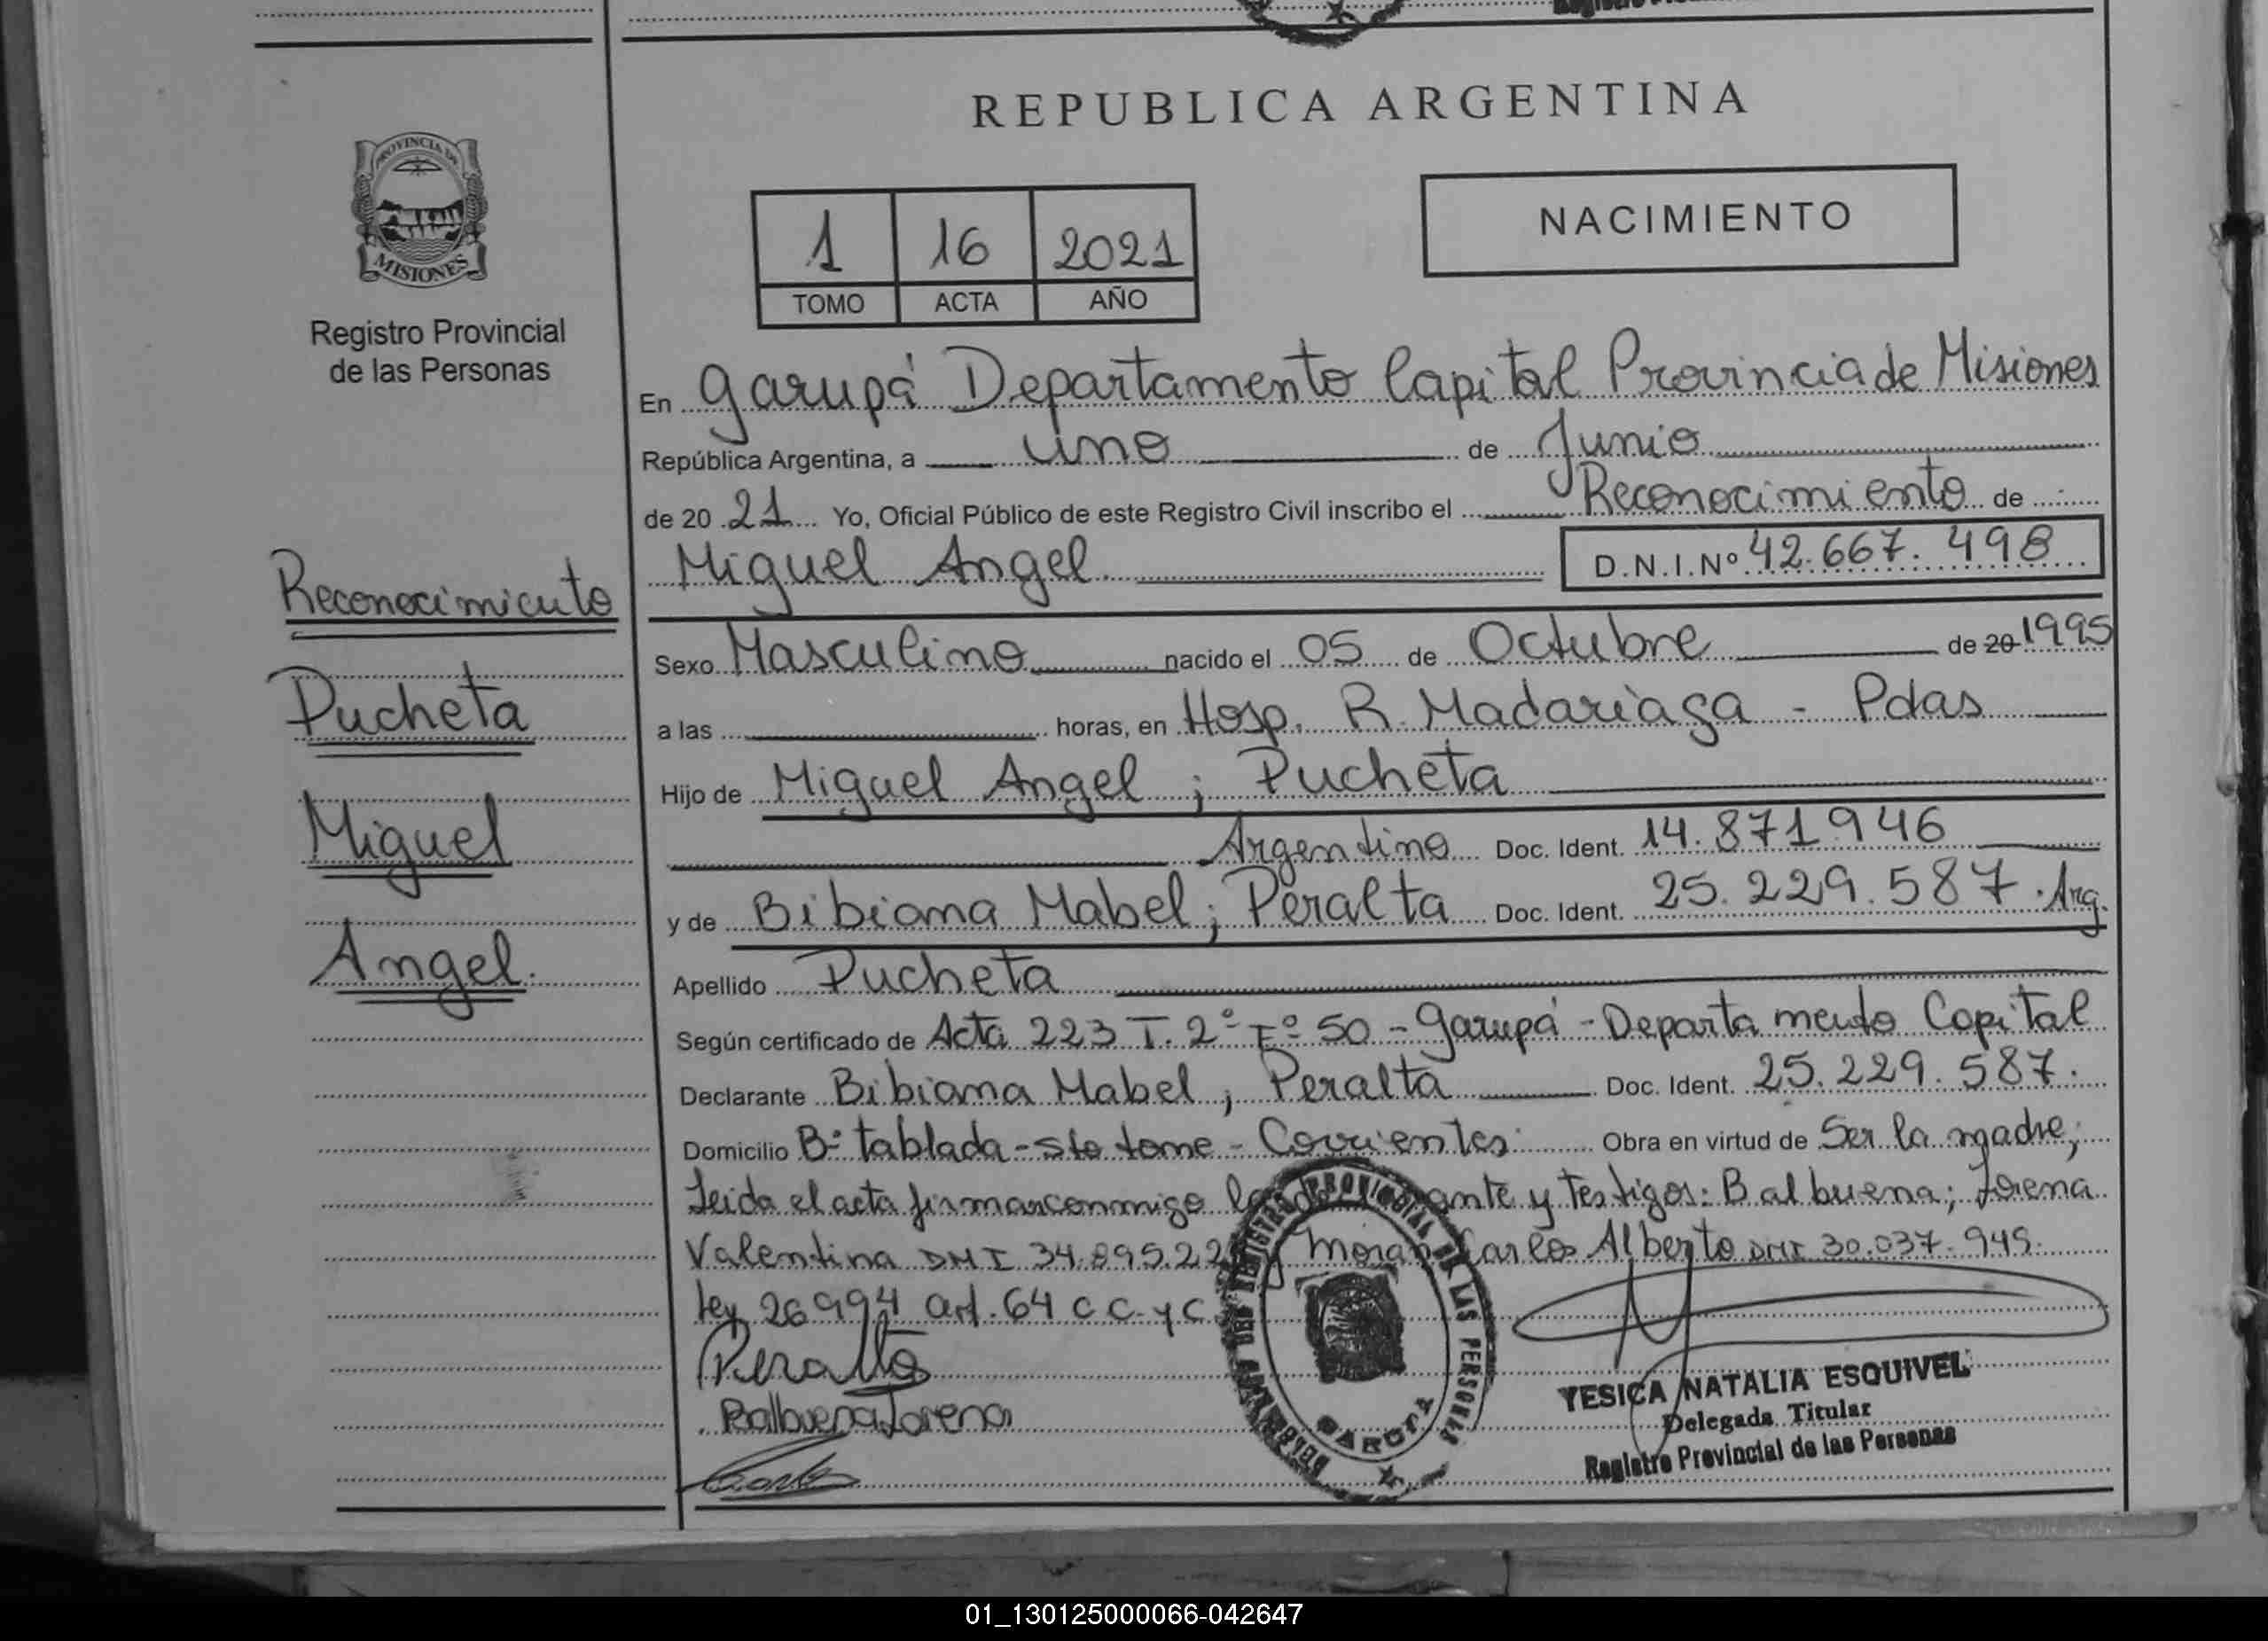 REPUBLICA ARGENTINA
PROVINCIA DE
MISIONES
Registro Provincial
de las Personas
NACIMIENTO
1 16 2021
TOMO ACTA AÑO
En Garupá Departamento Capital Provincia de Misiones
República Argentina, a uno de Junio
de 20 21 Yo, Oficial Público de este Registro Civil inscribo el Reconocimiento de
Miguel Angel. D.N.I.Nº 42.667.498
Reconocimiento
Pucheta
Miguel
Angel.
Sexo Masculino nacido el 05 de Octubre de 20 1995
a las horas, en Hosp. R. Madariaga - Pdas
Hijo de Miguel Angel ; Pucheta
Argentino Doc. Ident. 14.871946
y de Bibiana Mabel ; Peralta Doc. Ident. 25.229.587. Arg.
Apellido Pucheta
Según certificado de Acta 223 T. 2º Fº 50 - Garupá - Departamento Capital
Declarante Bibiana Mabel ; Peralta Doc. Ident. 25.229.587.
Domicilio Bº tablada - sto tome - Corrientes. Obra en virtud de Ser la madre;
Leida el acta firmarconmigo la y Testigos: Balbuena; Lorena
Valentina DNI 34.895.22 Moran Carlos Alberto DNI 30.037.949.
Ley 26994 art. 64 C C. y C.
Peralta
Balbuena Lorena
REGISTRO PROVINCIAL DE LAS PERSONAS
GARUPA
YESICA NATALIA ESQUIVEL
Delegada Titular
Registro Provincial de las Personas
01_130125000066-042647